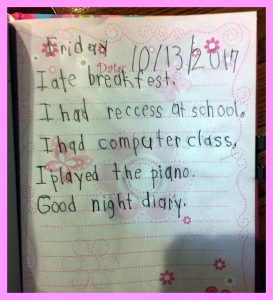 Friday
Date: 10/13/2017
I ate breakfest.
I had reccess at school.
I had computer class,
I played the piano.
Good night diary.